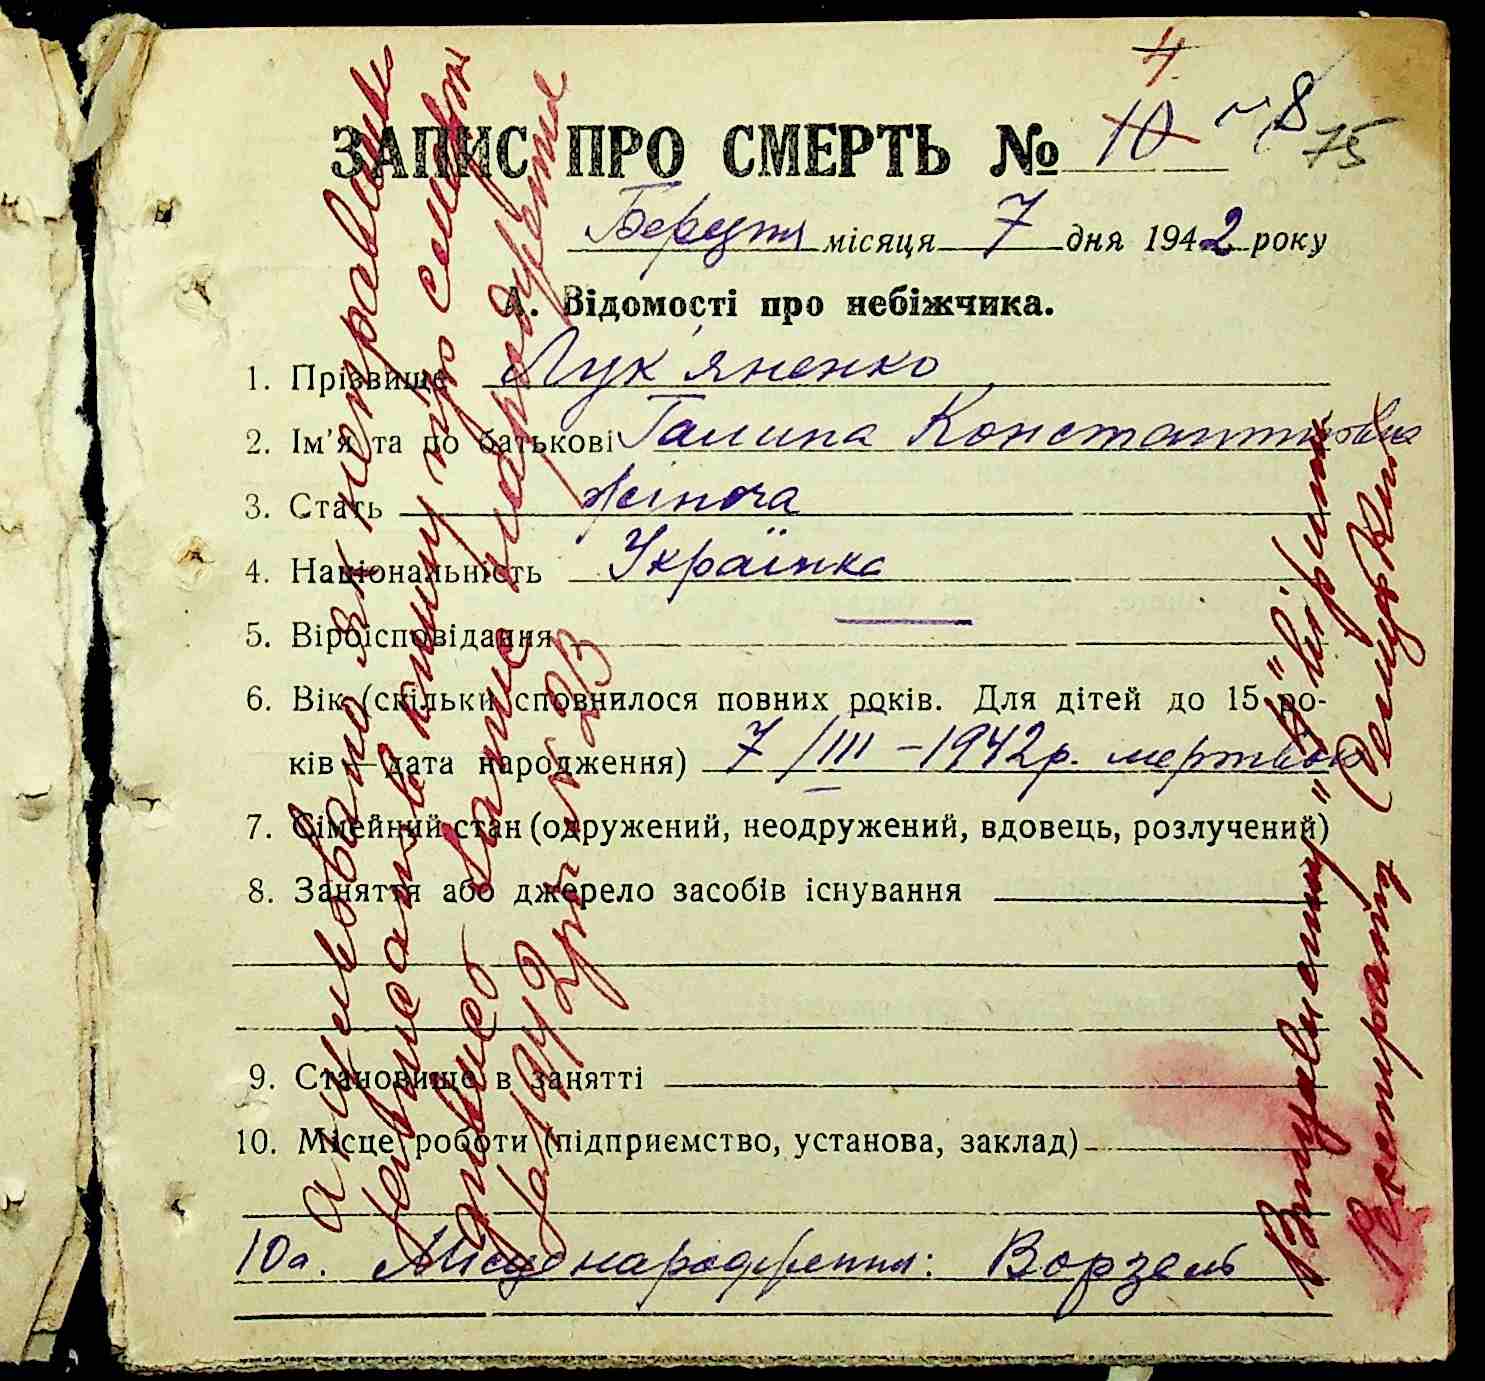 4
ЗАПИС ПРО СМЕРТЬ № 10 ~ 18 75
Березня місяця 7 дня 1942 року
А. Відомості про небіжчика.
1. Прізвище Лук'яненко
2. Ім'я та по батькові Галина Константиновна
3. Стать жіноча
4. Національність Українка
5. Віроісповідання
6. Вік (скільки сповнилося повних років. Для дітей до 15 ро-
ків — дата народження) 7/III – 1942р. мертвою
7. Сімейний стан (одружений, неодружений, вдовець, розлучений)
8. Заняття або джерело засобів існування
9. Становище в занятті
10. Місце роботи (підприємство, установа, заклад)
10а. Місце народження: Ворзель
анульовано як неправильно
записане в книгу про смерть
дивись запис народження
за 1942р. № 23
Виправленому "і" вірити